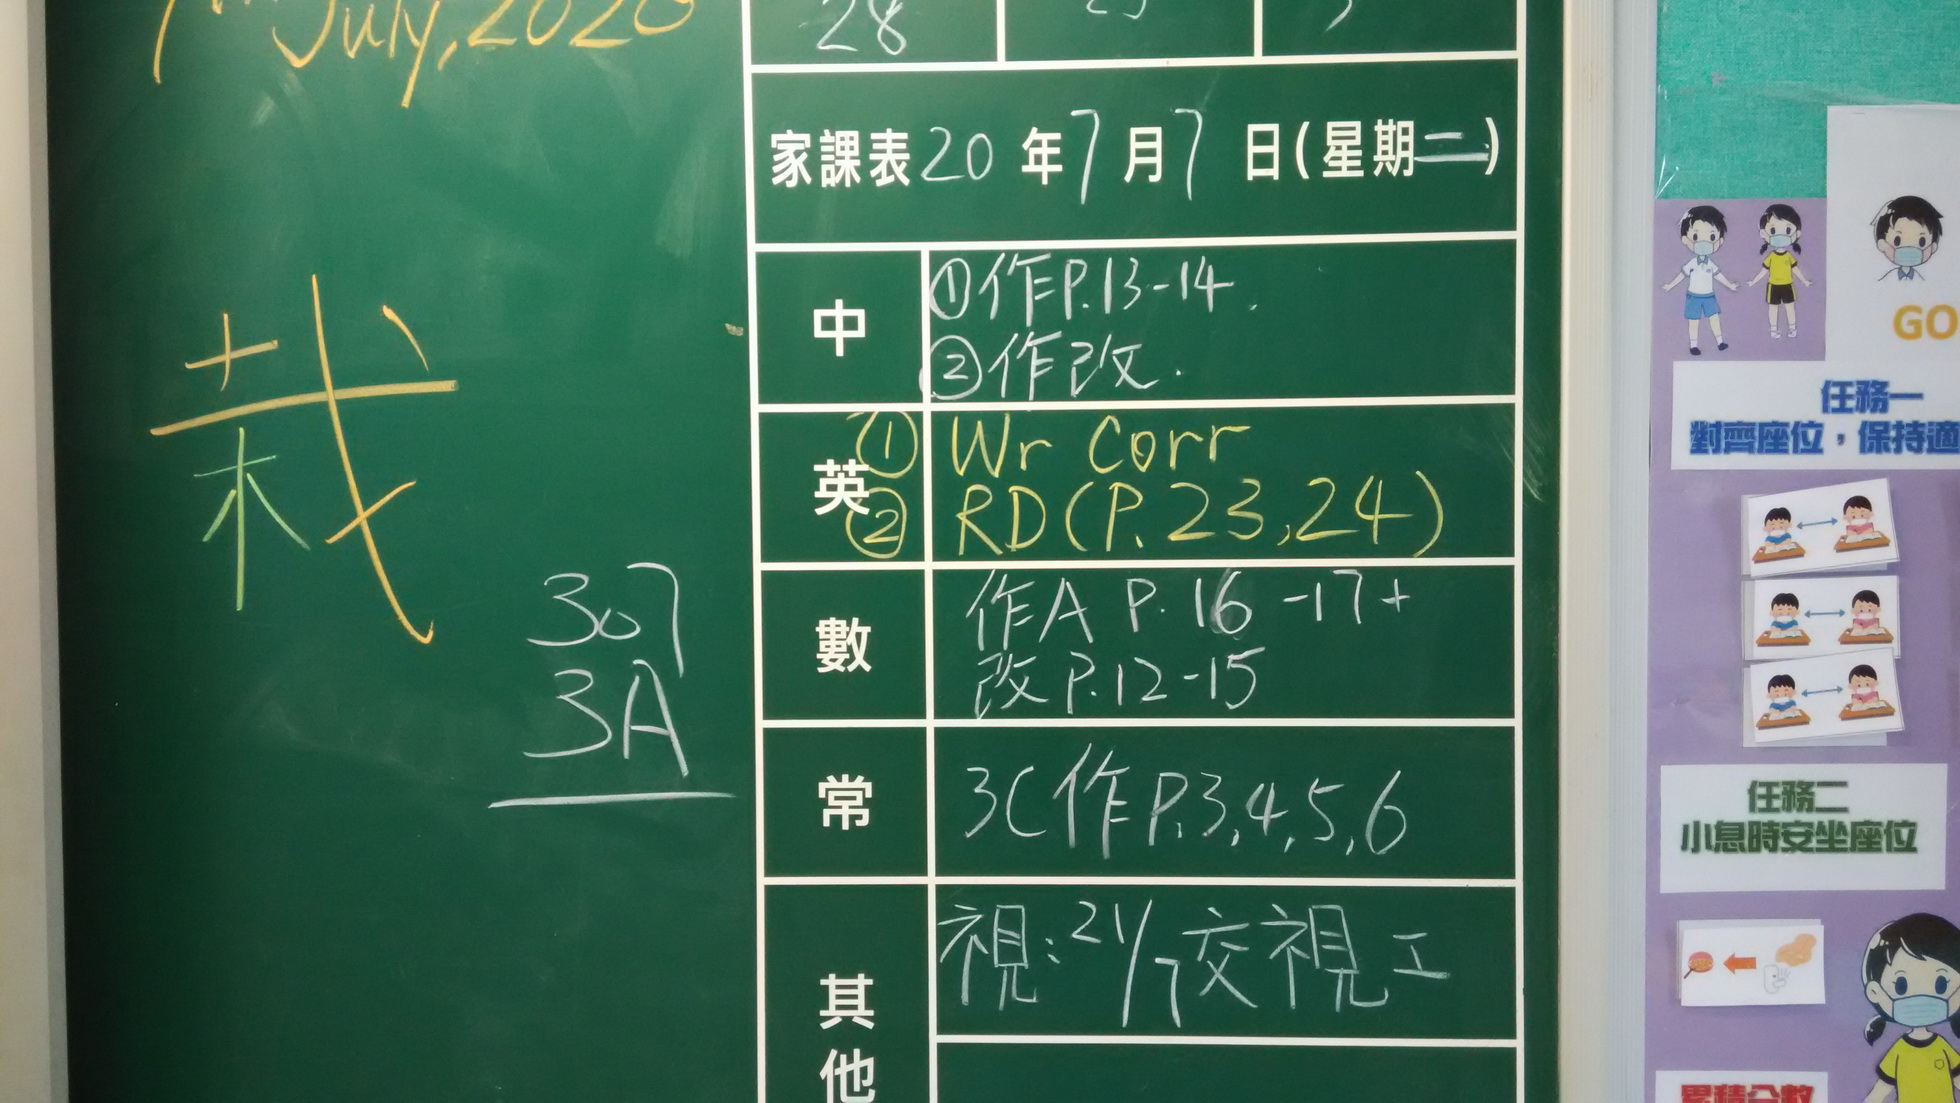 July, 2020
28
家課表20年7月7日(星期二)
中
①作P.13-14.
②作改.
英
① Wr Corr
② RD(P.23,24)
數
作A P.16-17+
改P.12-15
常
3C作P.3,4,5,6
其他
視:21/7交視工
栽
307
3A
GO
任務一
對齊座位，保持適
任務二
小息時安坐座位
累積分數